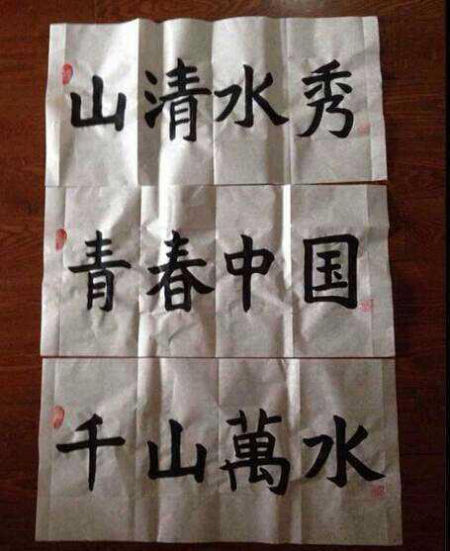 山清水秀
青春中国
千山萬水